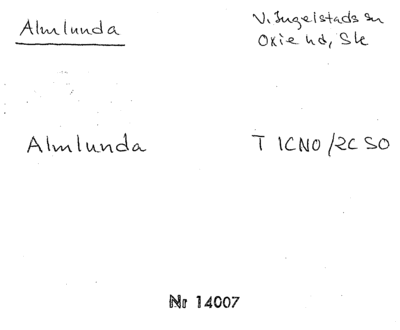 Almlunda
V. Ingelstads sn
Oxie hd, Sk
Almlunda
T 1CNO/2CSO
Nr 14007